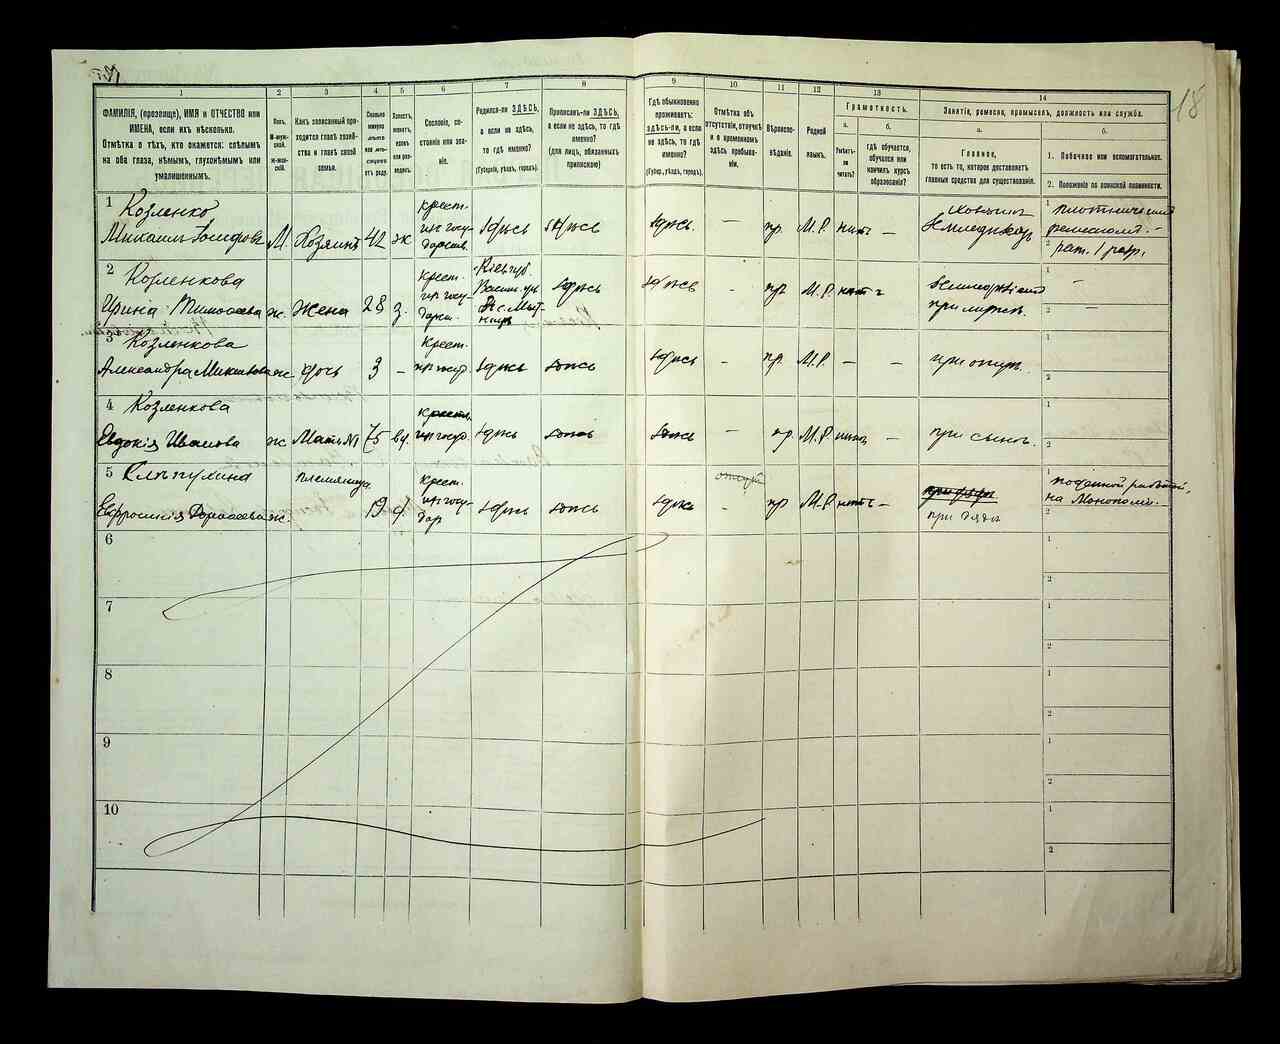 18
1 2 3 4 5 6 7 8 9 10 11 12 13 14
ФАМИЛІЯ, (прозвище), ИМЯ и ОТЧЕСТВО или
ИМЕНА, если ихъ нѣсколько.
Отмѣтка о тѣхъ, кто окажется: слѣпымъ
на оба глаза, нѣмымъ, глухонѣмымъ или
умалишеннымъ.
Полъ.
М-муж-
ской.
Ж-жен-
скій.
Какъ записанный при-
ходится главѣ хозяй-
ства и главѣ своей
семьи.
Сколько
минуло
лѣтъ
или мѣ-
сяцевъ
отъ роду.
Холостъ,
женатъ,
вдовъ
или раз-
веденъ.
Сословіе, со-
стояніе или зва-
ніе.
Родился-ли ЗДѢСЬ,
а если не здѣсь,
то гдѣ именно?
(Губернія, уѣздъ, городъ).
Приписанъ-ли ЗДѢСЬ,
а если не здѣсь, то гдѣ
именно?
(для лицъ, обязанныхъ
припискою)
Гдѣ обыкновенно
проживаетъ:
ЗДѢСЬ-ли, а если
не здѣсь, то гдѣ
именно?
(Губер., уѣздъ, городъ).
Отмѣтка объ
отсутствіи, отлучкѣ
и о временномъ
здѣсь пребыва-
ніи.
Вѣроиспо-
вѣданіе.
Родной
языкъ.
Грамотность.
а.
Умѣетъ-
ли
читать?
б.
Гдѣ обучается,
обучался или
кончилъ курсъ
образованія?
Занятіе, ремесло, промыселъ, должность или служба.
а.
Главное,
то есть то, которое доставляетъ
главныя средства для существованія.
б.
1. Побочное или вспомогательное.
2. Положеніе по воинской повинности.
1 Козленко
Михаилъ Іосифовъ М. Хозяинъ 42 ж
крест.
изъ госу-
дарств.
здѣсь здѣсь здѣсь. — пр. М.Р. нѣтъ —
Земледѣлецъ
плотнический
ремесломъ. -
2 Козленкова
Ирина Тимофеева ж. жена 28 з.
Крест.
изъ госу-
дарств.
Кіев. губ.
Васильк. у.
здѣсь здѣсь - пр М.Р. нѣтъ -
при мужѣ.
3 Козленкова
Александра Михайлова ж. дочь 3 —
Крест.
здѣсь здѣсь здѣсь - пр. М.Р. — —
при отцѣ.
4 Козленкова
Евдокія Иванова ж Мать №1 75 вд.
крест.
изъ госуд.
здѣсь здѣсь здѣсь — пр. М.Р. —
при сынѣ.
5 Слѣпухина
Ефросинія ж. племянница 19 д.
Крест.
изъ госу-
дар
здѣсь здѣсь здѣсь - пр М.Р. нѣтъ —
при дядѣ
поденной работой,
на Монопол. -
6
7
8
9
10